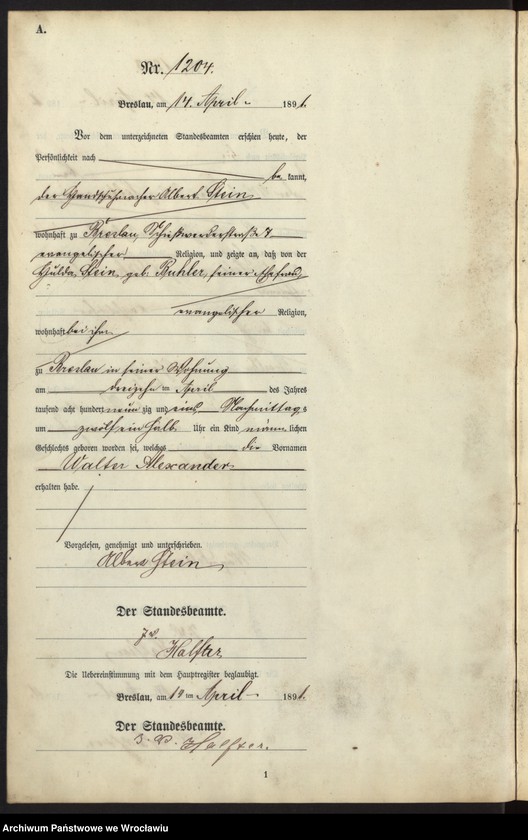 A.
Nr. 1204.
Breslau, am 14. April 1891.
Vor dem unterzeichneten Standesbeamten erschien heute, der
Persönlichkeit nach
be kannt,
der Handschuhmacher Albert Stein
wohnhaft zu Breslau, Schießwerderstraße 7
evangelischer Religion, und zeigte an, daß von der
Hulda Stein geb. seiner Ehefrau,
evangelischer Religion,
wohnhaft bei ihm
zu Breslau in seiner Wohnung
am dreizehn ten April des Jahres
tausend acht hundert neun zig und eins Nachmittags
um zwölf ein halb Uhr ein Kind männ lichen
Geschlechts geboren worden sei, welches die Vornamen
Walter Alexander
erhalten habe.
Vorgelesen, genehmigt und unterschrieben.
Albert Stein
Der Standesbeamte.
J. V.
Halfter
Die Uebereinstimmung mit dem Hauptregister beglaubigt.
Breslau, am 14 ten April 1891.
Der Standesbeamte.
J. V. Halfter.
1
Archiwum Państwowe we Wrocławiu